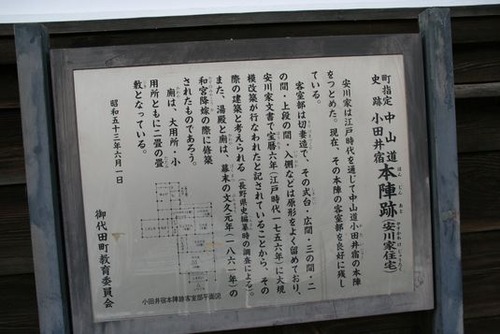 町指定 中山道
史跡 小田井宿 本陣跡(安川家住宅)
安川家は江戸時代を通じて中山道小田井宿の本陣
をつとめた。現在、その本陣の客室部を良好に残し
ている。
客室部は切妻造で、その式台・広間・三の間・二
の間・上段の間・入側などは原形をよく留めており、
安川家文書で宝暦六年(江戸時代一七五六年)に大規
模改築が行なわれたと記されていることから、その
際の建築と考えられる(長野県史編纂時の調査による)。
また、湯殿と厠は、幕末の文久元年(一八六一年)の
和宮降嫁の際に修築
されたものであろう。
厠は、大用所・小
用所ともに二畳の畳
敷となっている。
昭和五十三年六月一日
御代田町教育委員会
小田井宿本陣跡客室部平面図